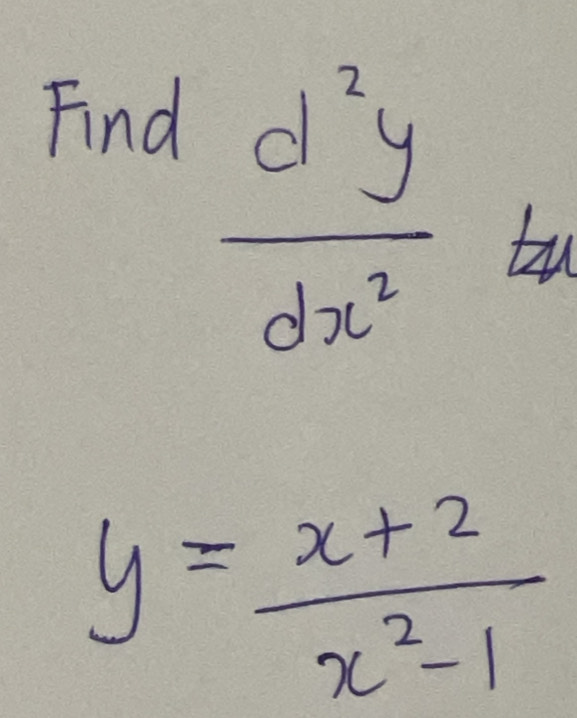 Find d²y
dx²
y = x + 2
x² - 1